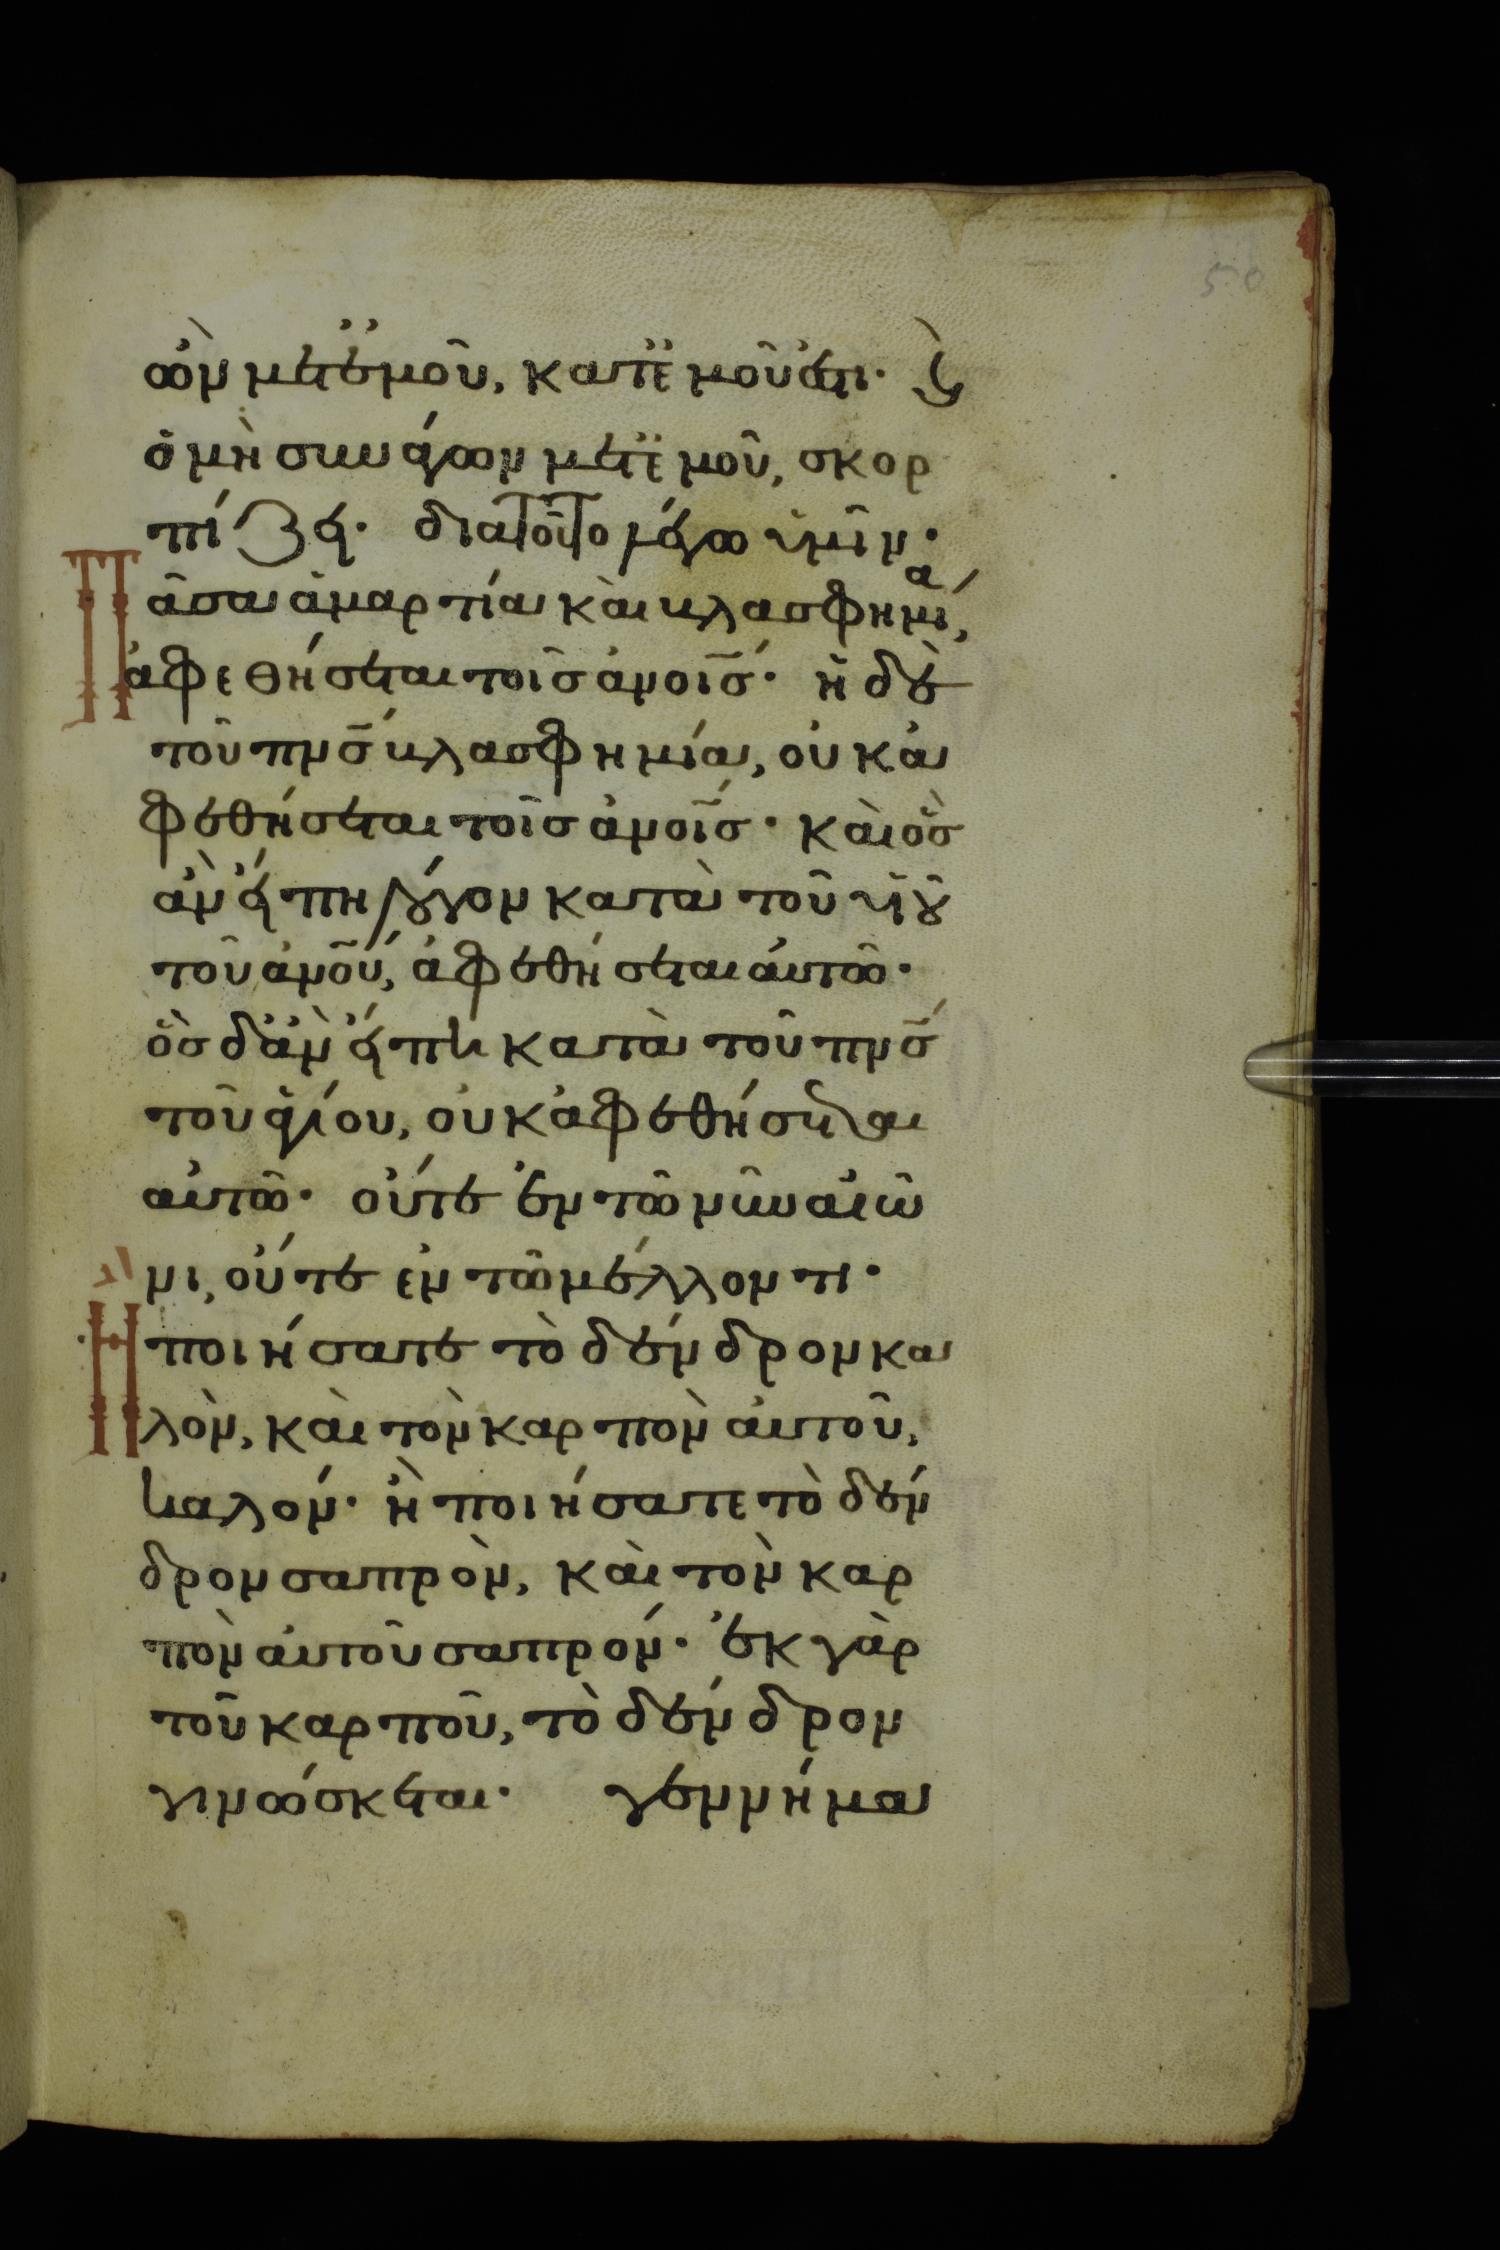 50
ὢν μετ ἐμοῦ, κατ ἐμοῦ ἐστι· ϗ
ὁ μὴ συνάγων μετ ἐμοῦ, σκορ
πίζει· διατοῦτο λέγω ὑμῖν·
Πᾶσα ἁμαρτία καὶ βλασφημία,
ἀφεθήσεται τοῖς ἀνοις· ἡ δὲ
τοῦ πνς βλασφημία, οὐκ ἀ
φεθήσεται τοῖς ἀνοις· καὶ ὃς
ἂν εἴπη λόγον κατὰ τοῦ υἱοῦ
τοῦ ἀνου, ἀφεθήσεται αὐτῶ·
ὃς δ ἂν εἴπη κατὰ τοῦ πνς
τοῦ ἁγίου, οὐκ ἀφεθήσεται
αὐτῶ· οὔτε ἐν τῶ νῦν αἰῶ
νι, οὔτε ἐν τῶ μέλλοντι·
Ἢ ποιήσατε τὸ δένδρον κα
λὸν, καὶ τὸν καρπὸν αὐτοῦ,
καλόν· ἢ ποιήσατε τὸ δέν
δρον σαπρὸν, καὶ τὸν καρ
πὸν αὐτοῦ σαπρόν· ἐκ γὰρ
τοῦ καρποῦ, τὸ δένδρον
γινώσκεται· γέννήμα